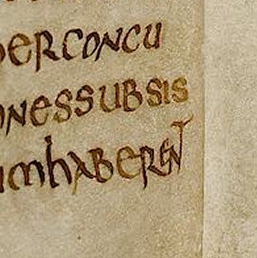 perconcu
onessubsis
umhaberent